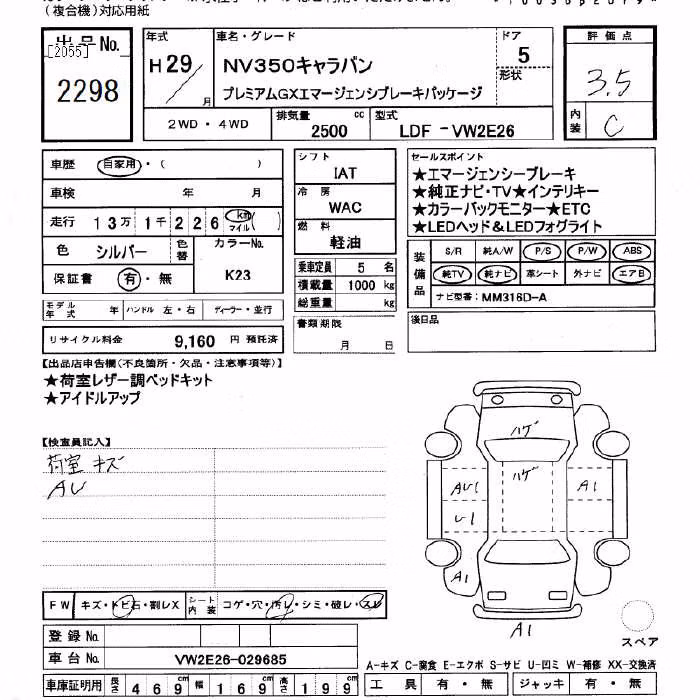 (複合機)対応用紙
出品No.
[2055]
2298
年式
H29/月
車名・グレード
NV350キャラバン
プレミアムGXエマージェンシブレーキパッケージ
ドア
5
形状
評価点
3.5
内装
C
2WD・4WD
排気量
2500
cc
型式
LDF-VW2E26
車歴 自家用・( )
車検 年 月
走行 13万1千226 km マイル( )
色 シルバー
色替
カラーNo.
K23
保証書 有・無
モデル年式 年 ハンドル 左・右 ディーラー・並行
リサイクル料金 9,160 円 預託済
シフト
IAT
冷房
WAC
燃料
軽油
乗車定員 5 名
積載量 1000 kg
総重量 kg
書類期限
月 日
セールスポイント
★エマージェンシーブレーキ
★純正ナビ・TV★インテリキー
★カラーバックモニター★ETC
★LEDヘッド&LEDフォグライト
装備品
S/R 純A/W P/S P/W ABS
純TV 純ナビ 革シート 外ナビ エアB
ナビ型番: MM316D-A
後日品
【出品店申告欄(不良箇所・欠品・注意事項等)】
★荷室レザー調ベッドキット
★アイドルアップ
【検査員記入】
荷室 キズ
AU
ハゲ
ハゲ
AU1
A1
U1
A1
A1
スペア
FW キズ・トビ石・割レX
シート内装 コゲ・穴・汚レ・シミ・破レ・スレ
登録No.
車台No. VW2E26-029685
車庫証明用 長さ 469cm 幅 169cm 高さ 199
A-キズ C-腐食 E-エクボ S-サビ U-凹ミ W-補修 XX-交換済
工具 有・無 ジャッキ 有・無